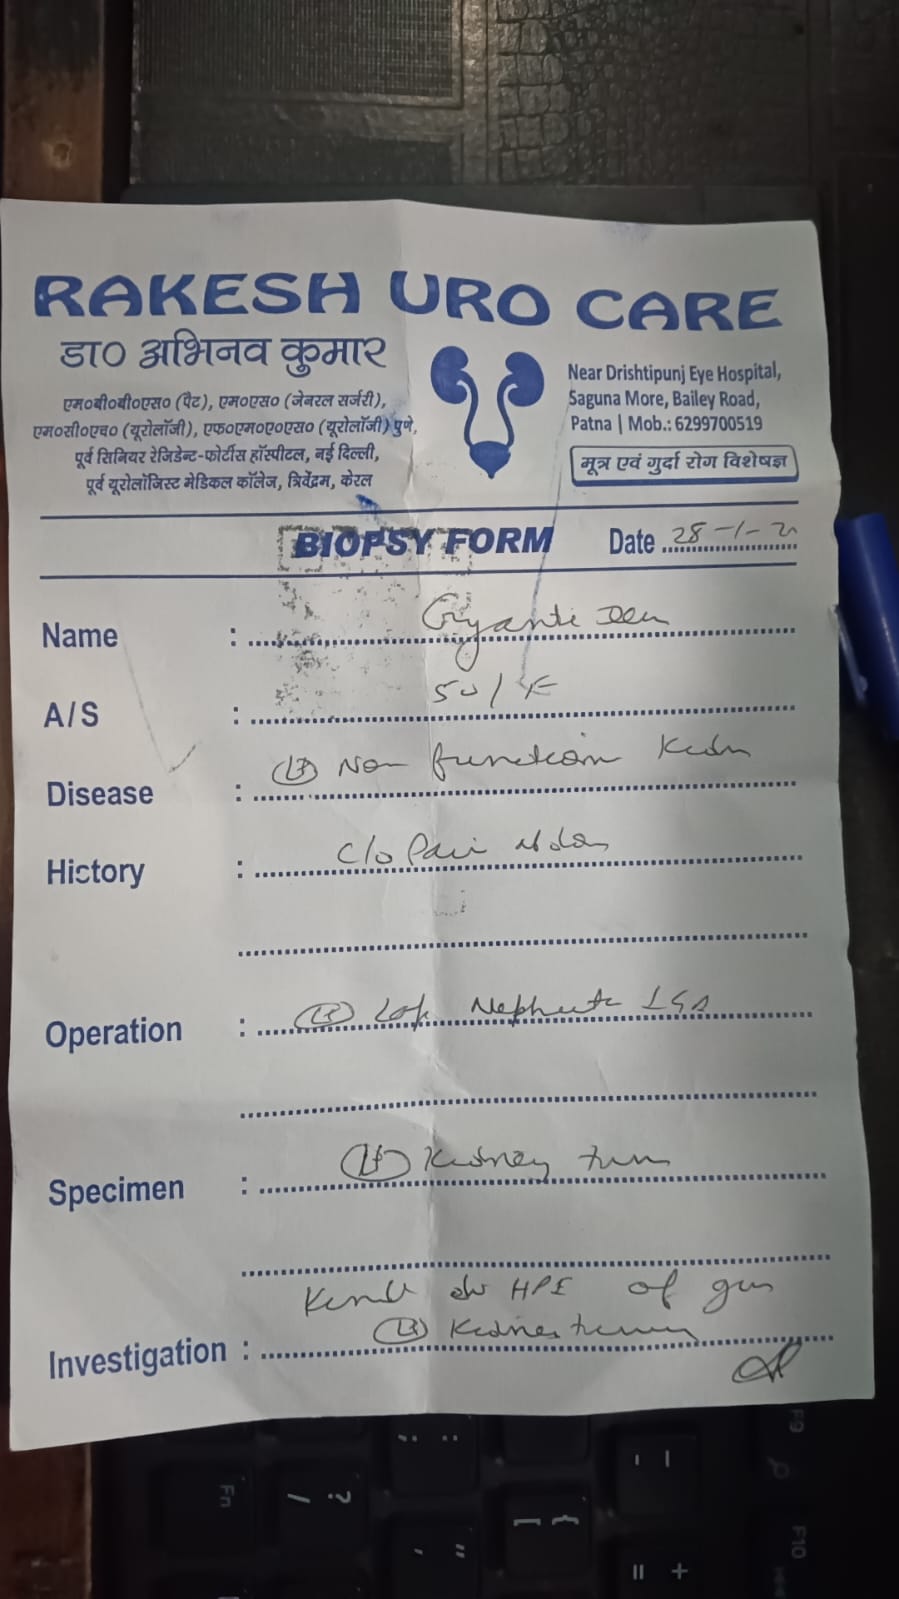 RAKESH URO CARE
डा० अभिनव कुमार
एम०बी०बी०एस० (पैट), एम०एस० (जेनरल सर्जरी),
एम०सी०एच० (यूरोलॉजी), एफ०एम०ए०एस० (यूरोलॉजी) पुणे,
पूर्व सिनियर रेजिडेन्ट-फोर्टीस हॉस्पीटल, नई दिल्ली,
पूर्व यूरोलॉजिस्ट मेडिकल कॉलेज, त्रिवेंद्रम, केरल
Near Drishtipunj Eye Hospital,
Saguna More, Bailey Road,
Patna | Mob.: 6299700519
मूत्र एवं गुर्दा रोग विशेषज्ञ
BIOPSY FORM Date 28-1-2
Name :
A/S : 50/F
Disease : (Lt) Non function
History : C/o Pain
Operation : Lap
Specimen : (Lt) Kidney
HPE of
Investigation :
Fn
? /
F9
F10